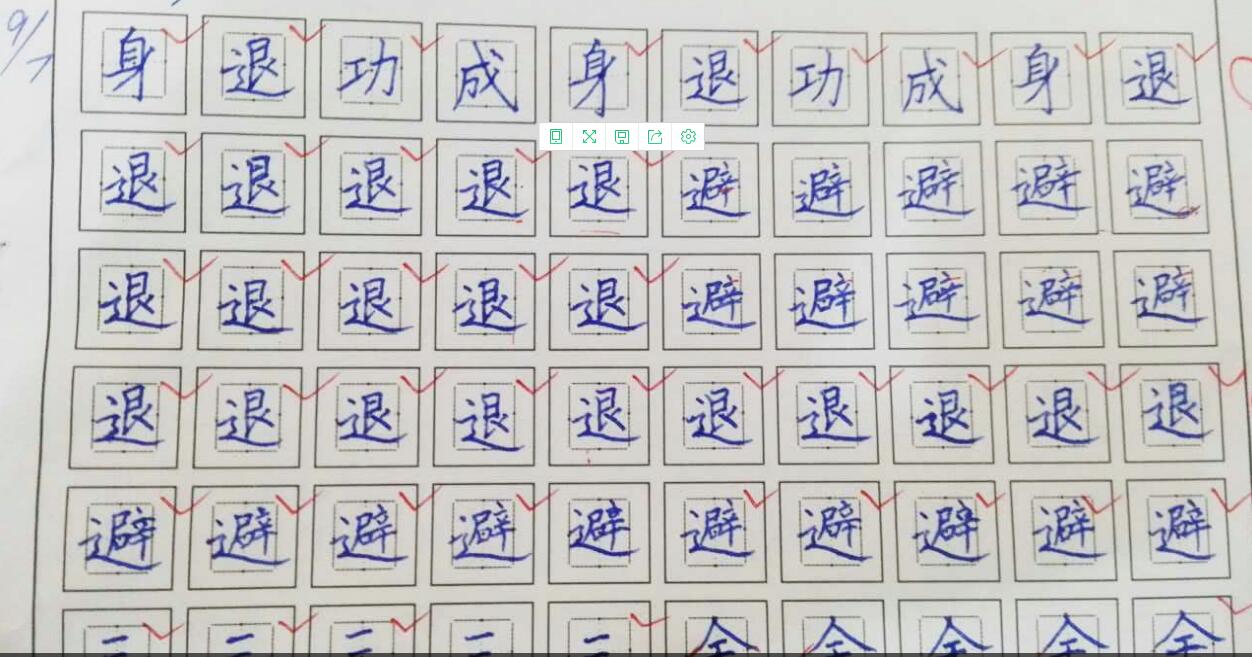 9/7
身退功成身退功成身退
退退退退退避避避避避
退退退退退避避避避避
退退退退退退退退退退
避避避避避避避避避避